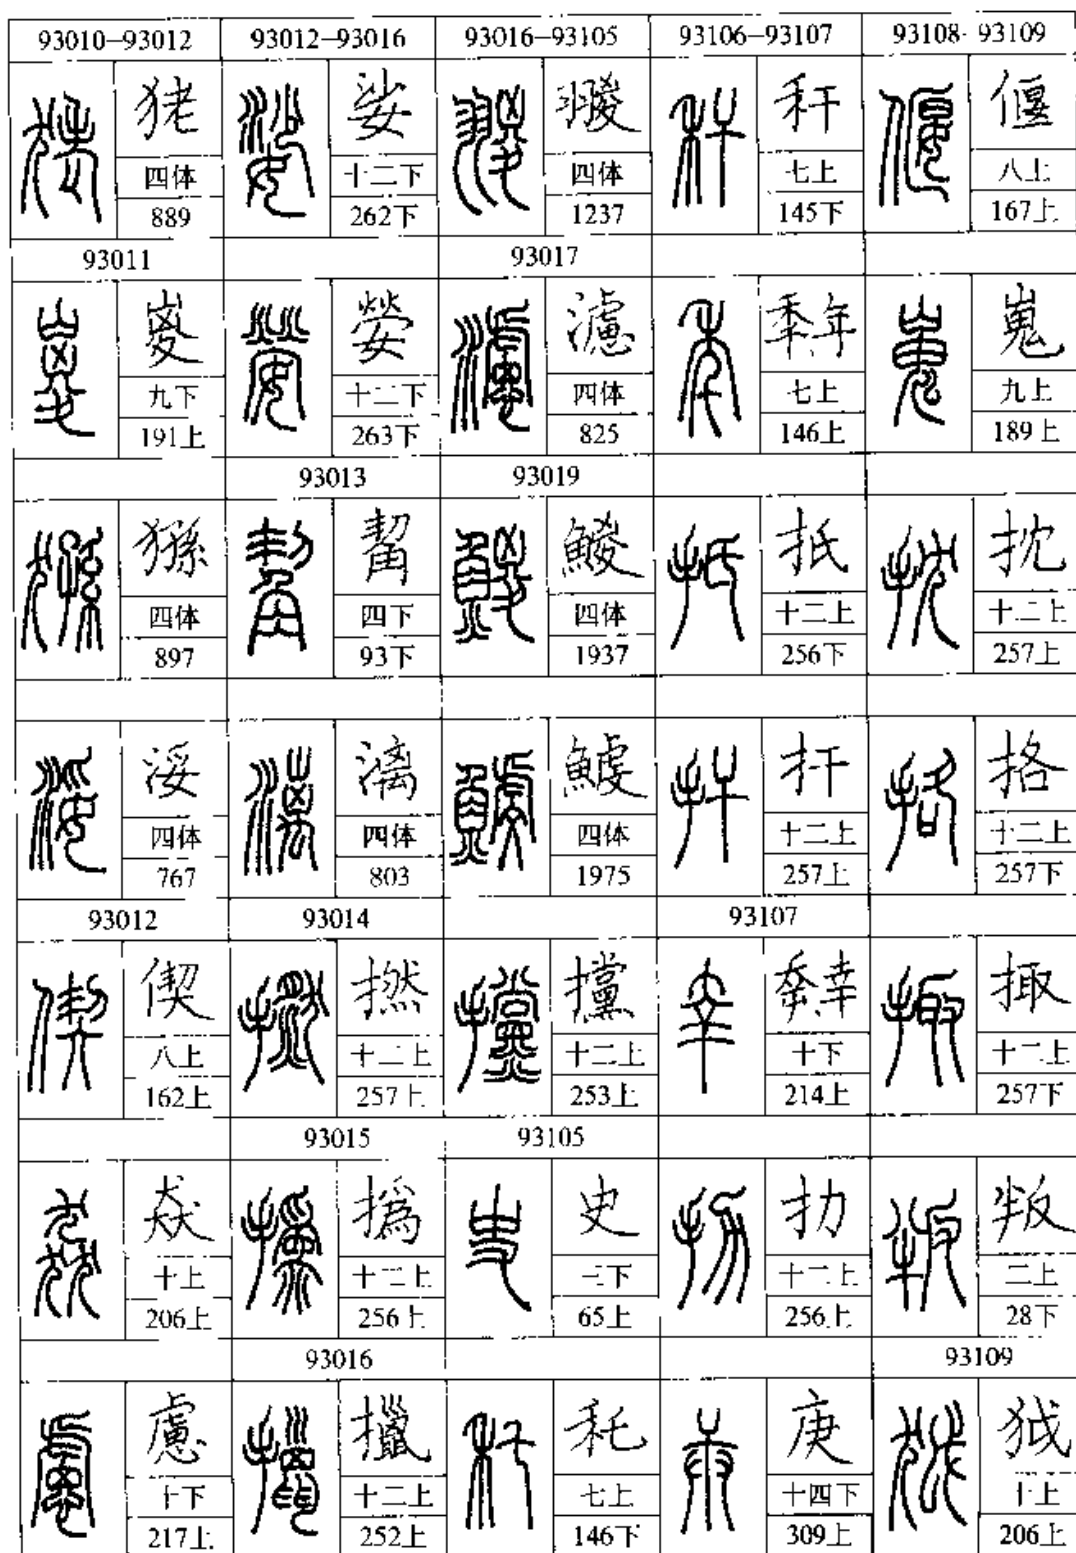 93010–93012
狫
四体
889
93011
嵏
九下
191上
猻
四体
897
浽
四体
767
93012
偰
八上
162上
猋
十上
206上
慮
十下
217上
93012–93016
娑
十二下
262下
嫈
十二下
263下
93013
觢
四下
93下
漓
四体
803
93014
撚
十二上
257上
93015
撝
十二上
256上
93016
擸
十二上
252上
93016–93105
翪
四体
1237
93017
濾
四体
825
93019
鯼
四体
1937
鰬
四体
1975
攩
十二上
253上
93105
史
三下
65上
秅
七上
146下
93106–93107
秆
七上
145下
秊年
七上
146上
扺
十二上
256下
扞
十二上
257上
93107
幸
十下
214上
扐
十二上
256上
庚
十四下
309上
93108-93109
偃
八上
167上
嵬
九上
189上
抌
十二上
257上
挌
十二上
257下
掫
十二上
257下
叛
二上
28下
93109
狘
十上
206上